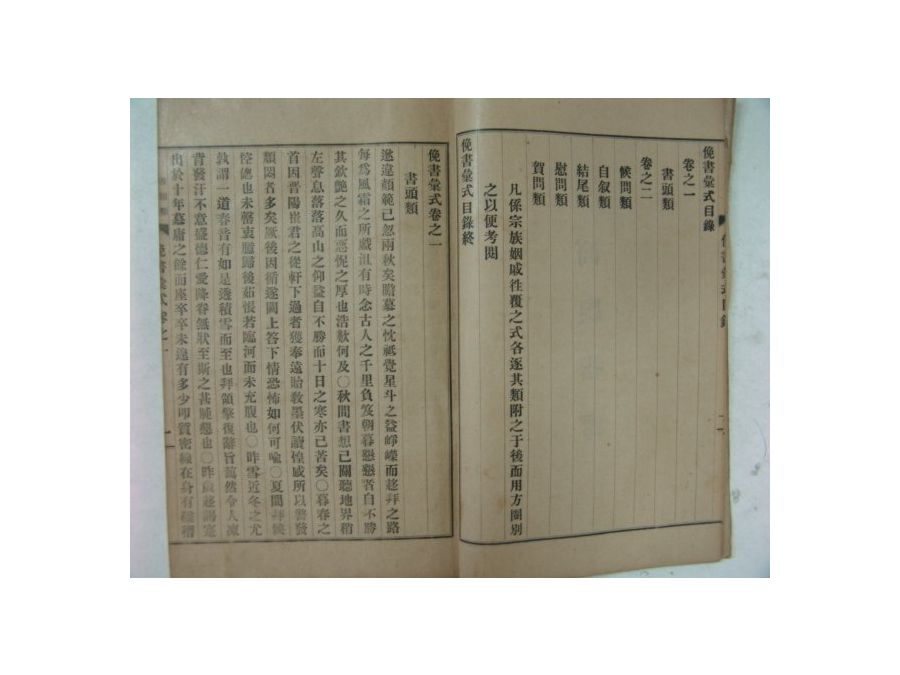 俛書彙式目錄
卷之一
書頭類
卷之二
候問類
自叙類
結尾類
慰問類
賀問類
凡係宗族姻戚徃覆之式各逐其類附之于後而用方圈別
之以便考閱
俛書彙式目錄終
俛書彙式卷之一
書頭類
邈違顔範已忽兩秋矣瞻慕之忱祗覺星斗之益崢嶸而趍拜之路
每爲風霜之所戱沮有時念古人之千里負笈朝暮懇懇者自不勝
其欽艶之久而慝怩之厚也浩歎何及〇秋間書想已關聽地界稍
左聲息落落高山之仰益自不勝而十日之寒亦已苦矣〇暮春之
首因晋陽崔君之從軒下過者獲奉遠貽敎墨伏讀惶戚所以警發
頹悶者多矣厥後因循遂闕上答下情恐怖如何可喩〇夏間拜候
悾偬也未罄衷臆歸後茹悵若臨河而未充腹也〇昨雪近冬之尤
孰謂一道春音有如是透積雪而至也拜領擎復辭旨藹然令人凍
背發汗不意盛德仁愛降眷無狀至斯之甚
出於十年慕庸之餘而座卒卒未遑有多少叩質密線在身有